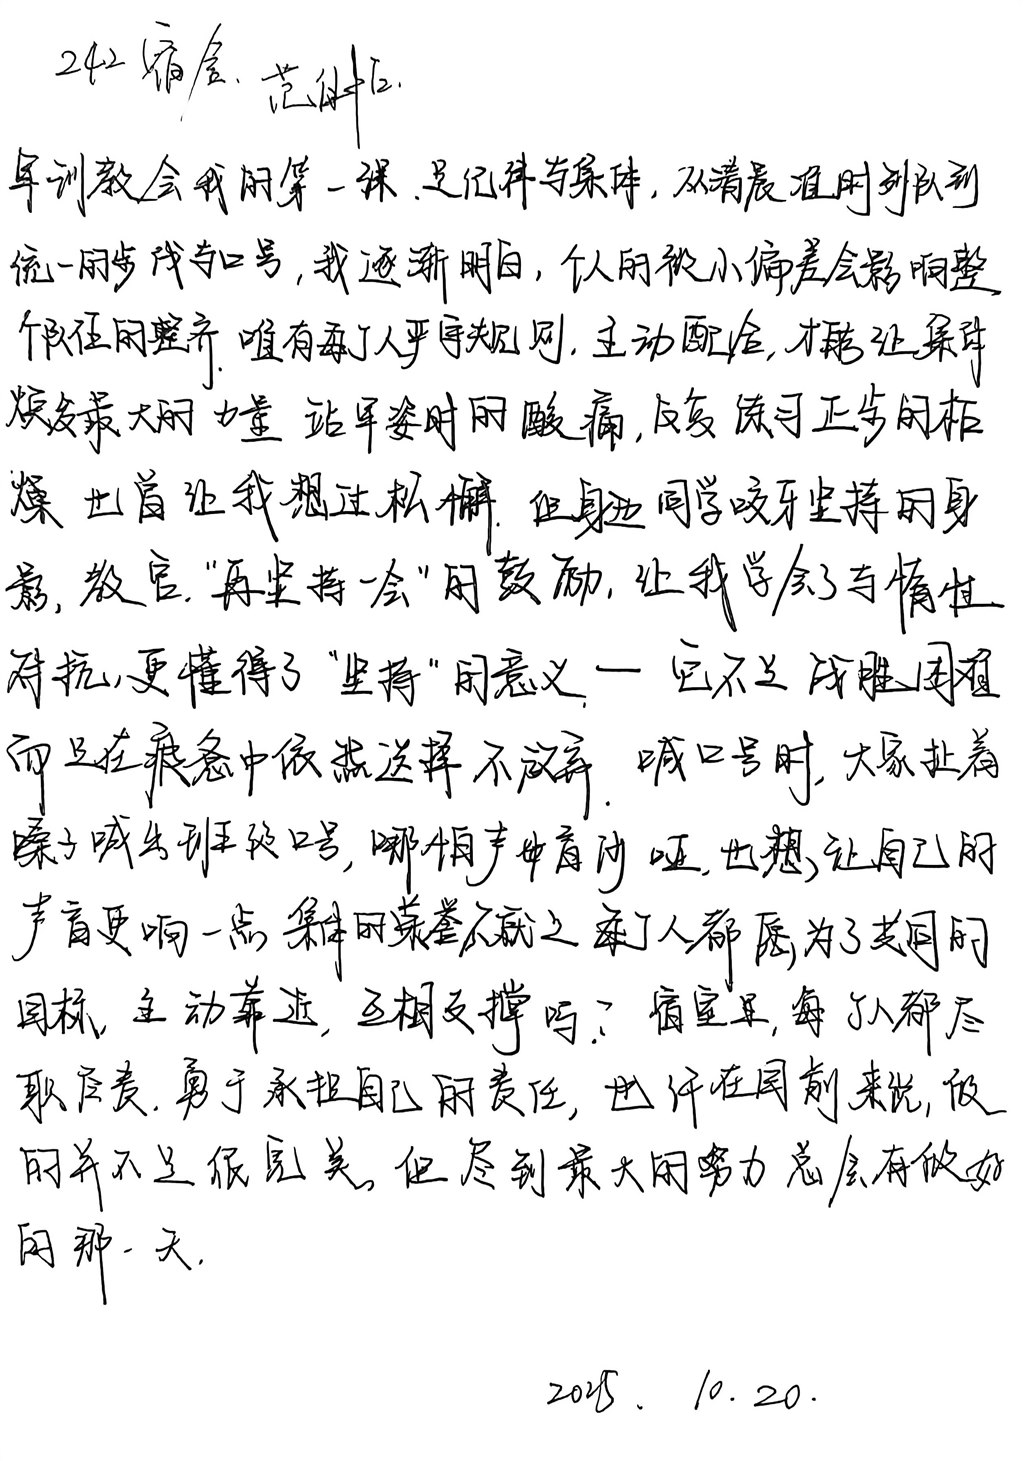 242宿舍.
范
军训教会我的第一课.是纪律与集体,从清晨准时到队到
统一的步伐与口号,我逐渐明白,个人的微小偏差会影响整
个队伍的整齐.唯有每个人严守规则.主动配合,才能让集体
焕发最大的力量 站军姿时的酸痛,反复练习正步的枯
燥 也曾让我想过松懈.但身边同学咬牙坚持的身
影,教官."再坚持一会"的鼓励.让我学会了与惰性
对抗,更懂得了"坚持"的意义.一它不是战胜困难
而是在疲惫中依然选择不放弃.喊口号时,大家扯着
嗓子喊出班级口号,哪怕声音沙哑.也想让自己的
声音更响一点.集体的荣誉不就是每个人都愿为了共同的
目标.主动靠近,互相支撑吗?宿室里,每个人都尽
职尽责.勇于承担自己的责任,也许在目前来说,做
的并不是很完美.但尽到最大的努力总会有做好
的那一天.
2025. 10.20.